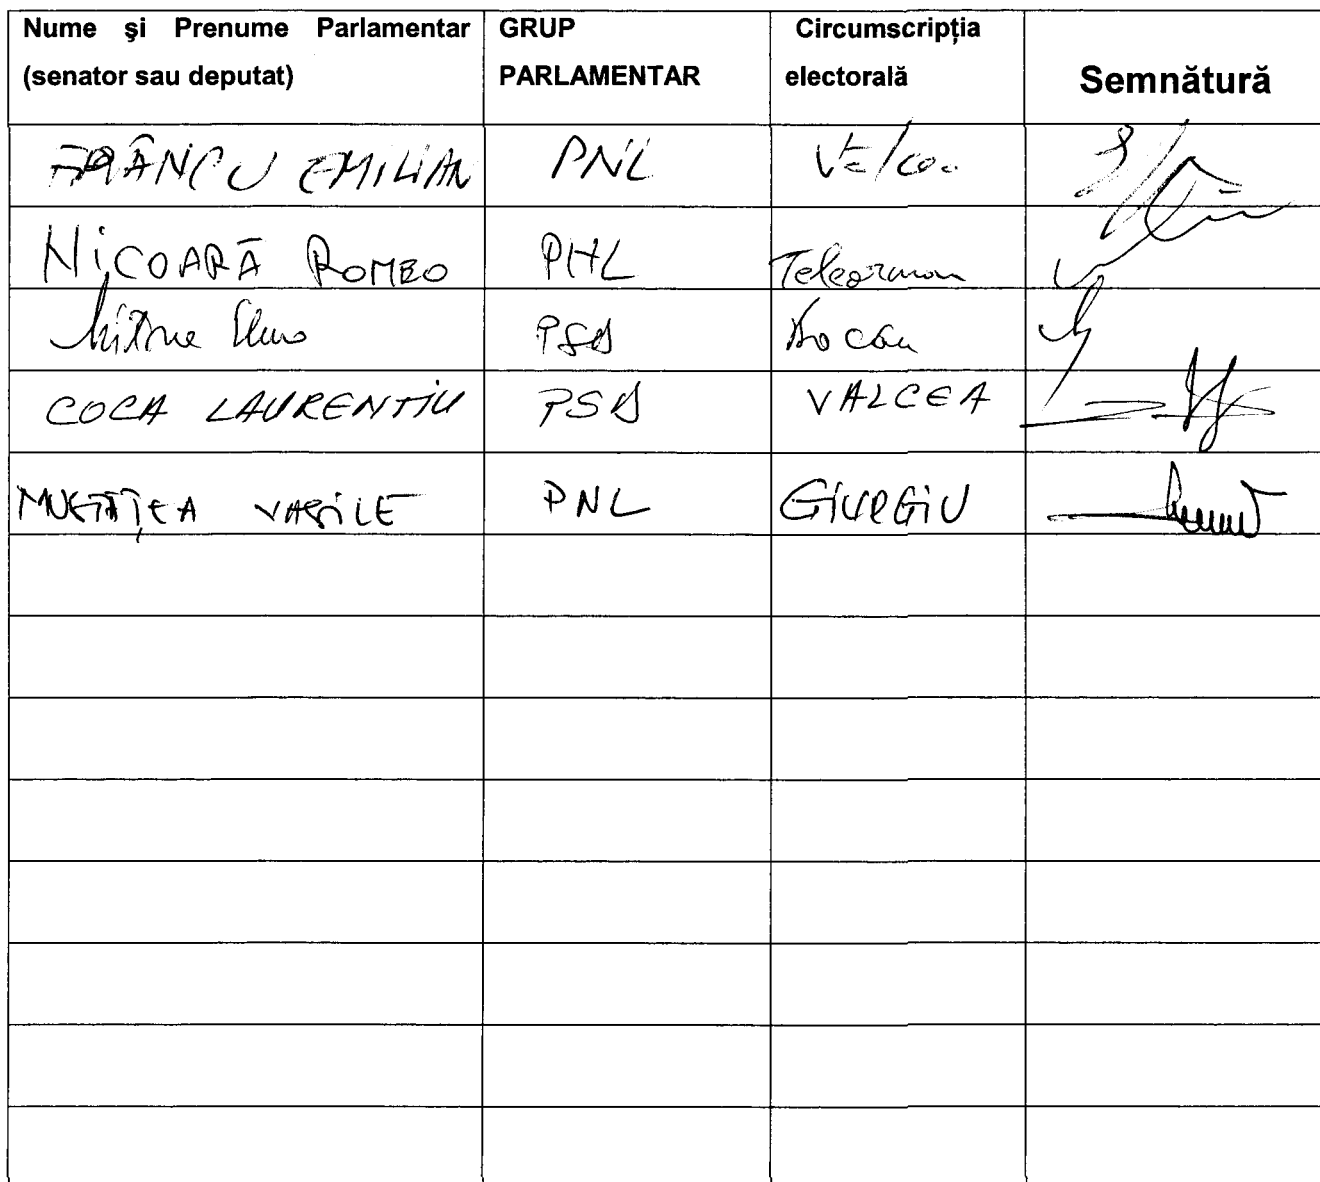 Nume şi Prenume Parlamentar (senator sau deputat)
GRUP PARLAMENTAR
Circumscripţia electorală
Semnătură
FRÂNCU EMILIAN PNL
NICOARĂ ROMEO PNL Teleorman
PSD Bacău
COCA LAURENTIU PSD VALCEA
VASILE PNL GIURGIU